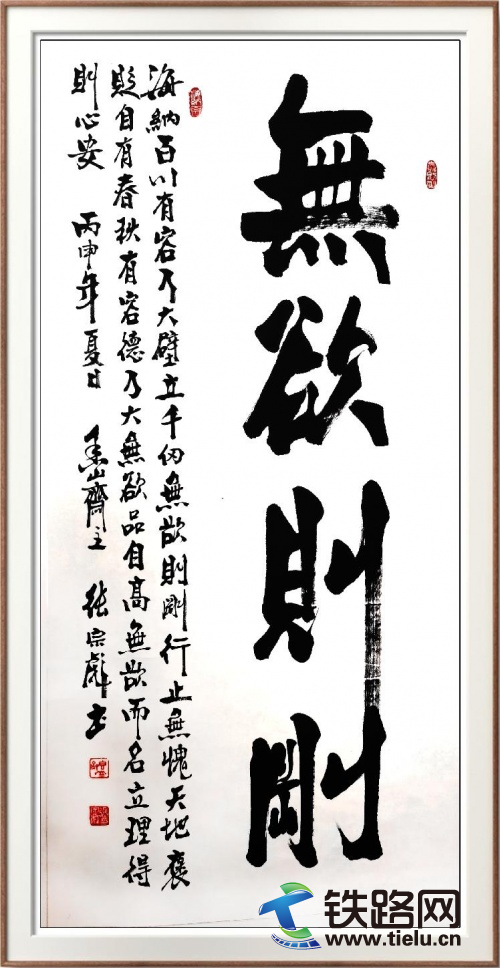 無欲則剛
海納百川有容乃大壁立千仞無欲則剛行止無愧天地褒
貶自有春秋有容德乃大無欲品自高無欲而名立理得
則心安 丙申年夏日 山齋主 張宗彪書
铁路网
www.tielu.cn